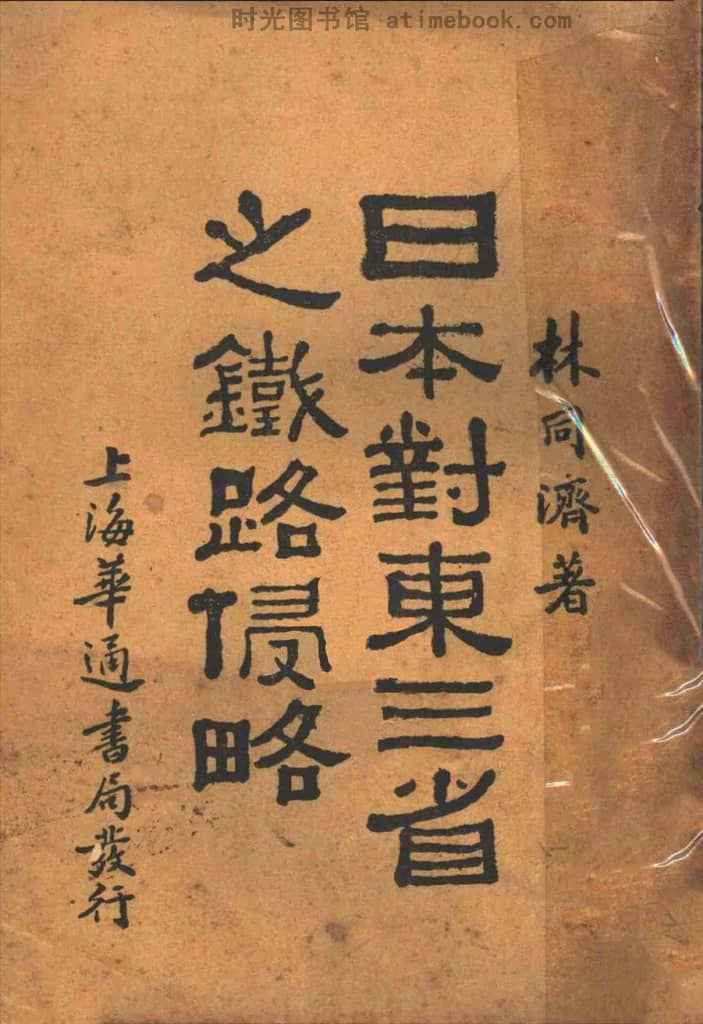 时光图书馆 atimebook.com
林同濟著
日本對東三省
之鐵路侵略
上海華通書局發行